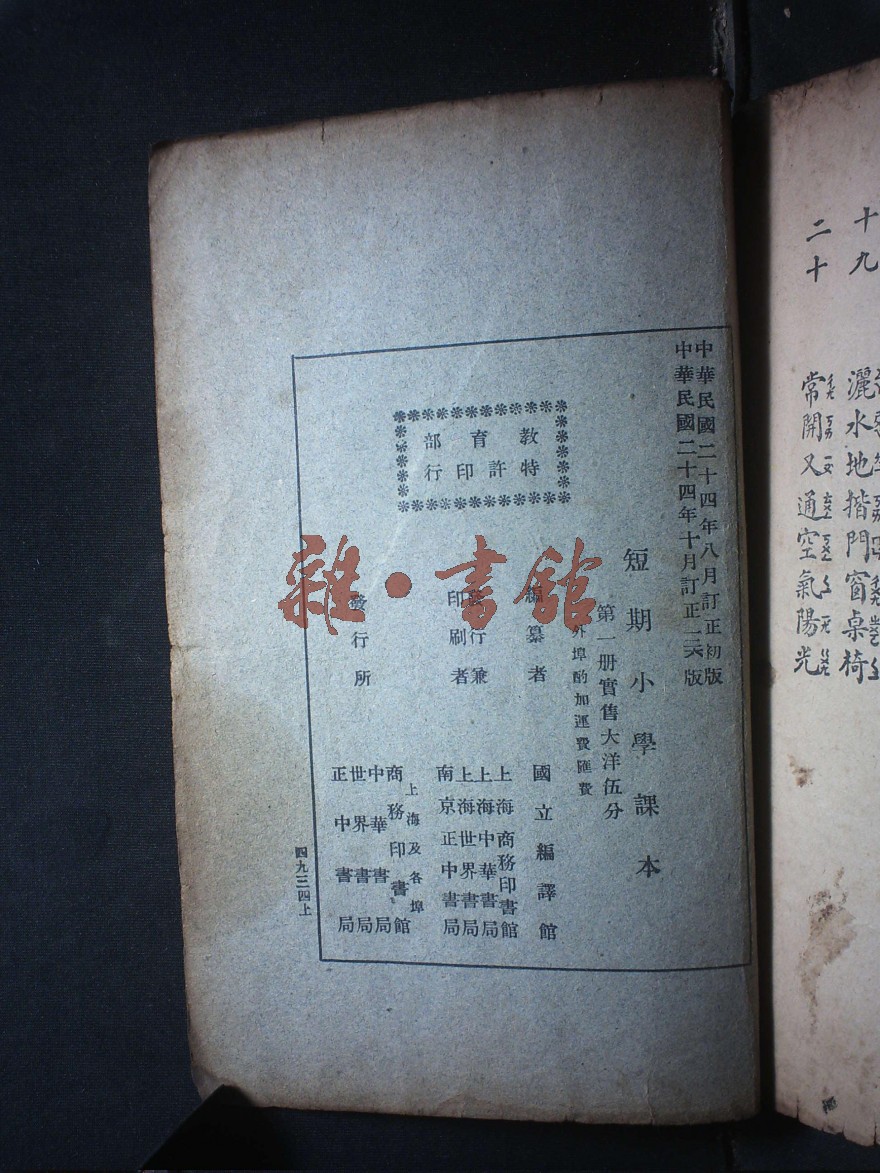 十九
灑水地揩門窗桌椅
二十
常開又通空氣陽光
中華民國二十四年八月訂正初版
中華民國二十四年十月訂正
短期小學課本
第一册實售大洋伍分
外埠酌加運費匯費
教育部
特許印行
編纂者
國立編譯館
發行兼
印刷者
上海商務印書館
上海中華書局
上海世界書局
南京正中書局
發行所
上海及各埠
商務印書館
中華書局
世界書局
正中書局
四九三四上
雜·書館